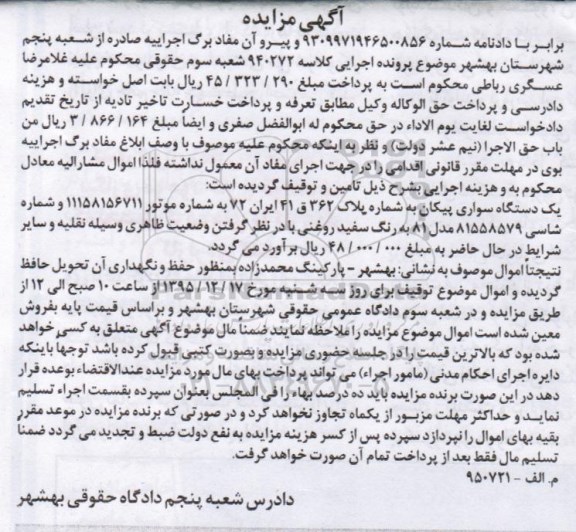 آگهی مزایده
برابر با دادنامه شماره ۹۳۰۹۹۷۱۹۴۶۵۰۰۸۵۶ و پیرو آن مفاد برگ اجراییه صادره از شعبه پنجم
شهرستان بهشهر موضوع پرونده اجرایی کلاسه ۹۴۰۲۷۲ شعبه سوم حقوقی محکوم علیه غلامرضا
عسگری رباطی محکوم است به پرداخت مبلغ ۲۹۰ / ۳۲۳ / ۴۵ ریال بابت اصل خواسته و هزینه
دادرسی و پرداخت حق الوکاله وکیل مطابق تعرفه و پرداخت خسارت تاخیر تادیه از تاریخ تقدیم
دادخواست لغایت یوم الاداء در حق محکوم له ابوالفضل صفری و ایضا مبلغ ۱۶۴ / ۸۶۶ / ۳ ریال من
باب حق الاجرا (نیم عشر دولت)، و نظر به اینکه محکوم علیه موصوف با وصف ابلاغ مفاد برگ اجراییه
بوی در مهلت مقرر قانونی اقدامی را در جهت اجرای مفاد آن معمول نداشته فلذا اموال مشارالیه معادل
محکوم به و هزینه اجرایی بشرح ذیل تأمین و توقیف گردیده است:
یک دستگاه سواری پیکان به شماره پلاک ۳۶۲ ق ۴۱ ایران ۷۲ به شماره موتور ۱۱۱۵۸۱۵۶۷۱۱ و شماره
شاسی ۸۱۵۵۸۵۷۹ مدل ۸۱ به رنگ سفید روغنی با در نظر گرفتن وضعیت ظاهری وسیله نقلیه و سایر
شرایط در حال حاضر به مبلغ ۰۰۰ / ۰۰۰ / ۴۸ ریال برآورد می گردد.
نتیجتاً اموال موصوف به نشانی: بهشهر - پارکینگ محمدزاده بمنظور حفظ و نگهداری آن تحویل حافظ
گردیده و اموال موضوع توقیف برای روز سه شنبه مورخ ۱۷ / ۱۲ / ۱۳۹۵ از ساعت ۱۰ صبح الی ۱۲ از
طریق مزایده و در شعبه سوم دادگاه عمومی حقوقی شهرستان بهشهر و براساس قیمت پایه بفروش
معین شده است اموال موضوع مزایده را ملاحظه نمایند ضمناً مال موضوع آگهی متعلق به کسی خواهد
شده بود که بالاترین قیمت را در جلسه حضوری مزایده و بصورت کتبی قبول کرده باشد توجها باینکه
دایره اجرای احکام مدنی (مامور اجراء) می تواند پرداخت بهای مال مورد مزایده عندالاقتضاء بوعده قرار
دهد در این صورت برنده مزایده باید ده درصد بهاء را فی المجلس بعنوان سپرده بقسمت اجراء تسلیم
نماید و حداکثر مهلت مزبور از یکماه تجاوز نخواهد کرد و در صورتی که برنده مزایده در موعد مقرر
بقیه بهای اموال را نپردازد سپرده پس از کسر هزینه مزایده به نفع دولت ضبط و تجدید می گردد ضمناً
تسلیم مال فقط بعد از پرداخت تمام آن صورت خواهد گرفت.
م. الف - ۹۵۰۷۲۱
دادرس شعبه پنجم دادگاه حقوقی بهشهر